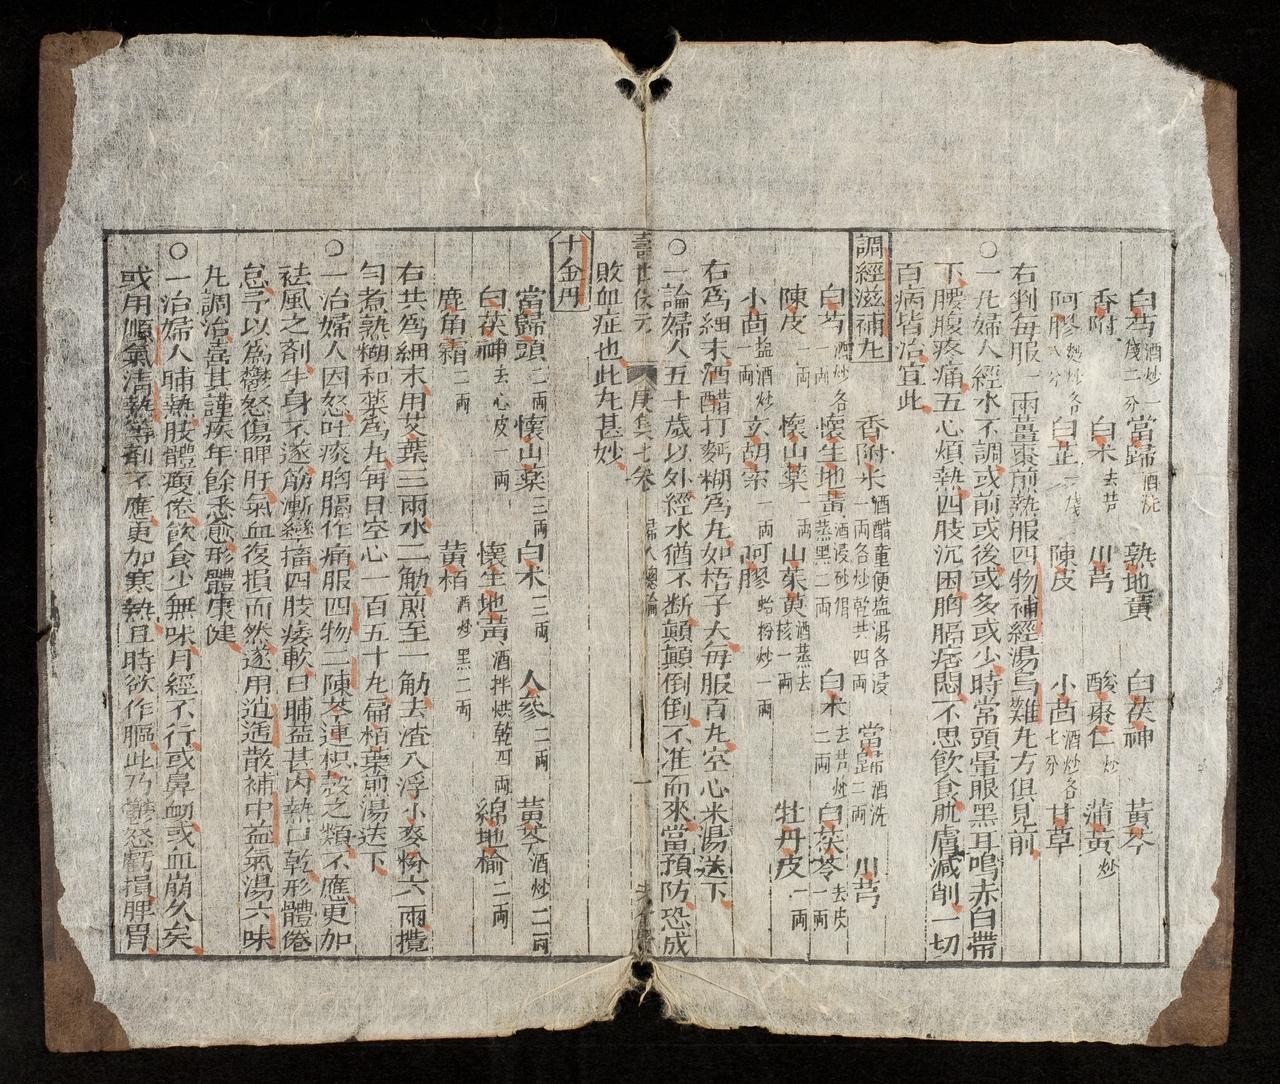 白芍酒炒一錢二分 當歸酒洗 熟地黃 白茯神 黃芩
香附 白朮去芦 川芎 酸棗仁炒 蒲黃炒
阿膠炒各八分 白芷一錢 陳皮 小茴酒炒各七分 甘草
右剉每服一兩薑棗煎熱服四物補經湯烏雞丸方俱見前
○一凡婦人經水不調或前或後或多或少時常頭暈眼黑耳鳴赤白帶
下腰腹疼痛五心煩熱四肢沉困胸膈痞悶不思飲食肌膚減削一切
百病皆治宜此
調經滋補丸
香附米酒醋童便塩湯各浸一兩各炒乾共四兩 當歸酒洗二兩 川芎
白芍酒炒各一兩 懷生地黃酒浸砂鍋蒸黑二兩 白朮去芦炒二兩 白茯苓去皮一兩
陳皮一兩 懷山藥一兩 山茱萸酒蒸去核一兩 牡丹皮一兩
小茴塩酒炒一兩 玄胡索一兩 阿膠蛤粉炒一兩
右為細末酒醋打麪糊為丸如梧子大每服百丸空心米湯送下
○一論婦人五十歲以外經水猶不断顛顛倒倒不准而來當預防恐成
敗血症也此丸甚妙
壽世保元 庚集七卷 婦人總論 一
十金丹
當歸頭二兩 懷山藥三兩 白朮三兩 人參二兩 黃芩酒炒二兩
白茯神去心皮一兩 懷生地黃酒拌烘乾四兩 綿地榆二兩
鹿角霜二兩 黃栢酒炒黑二兩
右共為細末用艾葉三兩水二觔煎至一觔去渣入浮小麥粉六兩攪
勻煮熟糊和藥為丸每日空心一百五十丸扁栢葉煎湯送下
○一治婦人因怒吐痰胸膈作痛服四物二陳芩連枳殼之類不應更加
祛風之剤半身不遂筋漸攣搐四肢痿軟日晡益甚內熱口乾形體倦
怠予以為鬱怒傷脾肝氣血復損而然遂用逍遙散補中益氣湯六味
丸調治喜其謹疾年餘悉愈形體康健
○一治婦人肺熱肢體瘦倦飲食少無味月經不行或鼻衂或血崩久矣
或用順氣清熱等剤不應更加寒熱且時欲作嘔此乃鬱怒虧損脾胃